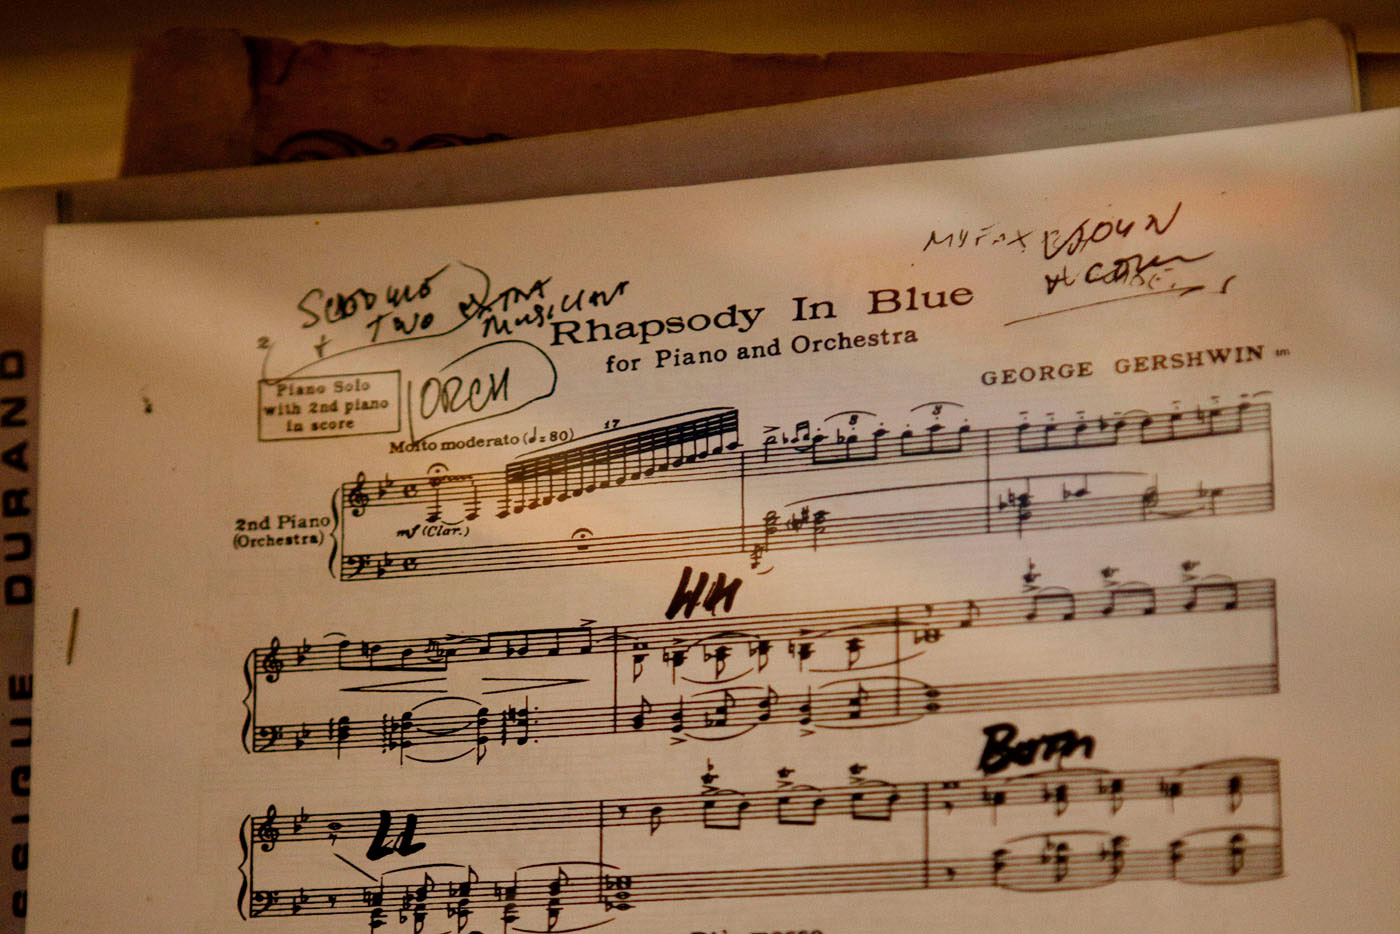 TWO EXTRA
MUSICIANS
2
Rhapsody In Blue
for Piano and Orchestra
GEORGE GERSHWIN
Piano Solo
with 2nd piano
in score
ORCH
Molto moderato (♩=80)
17
3
3
2nd Piano
(Orchestra)
mf (Clar.)
BOTH
SSIQUE DURAND